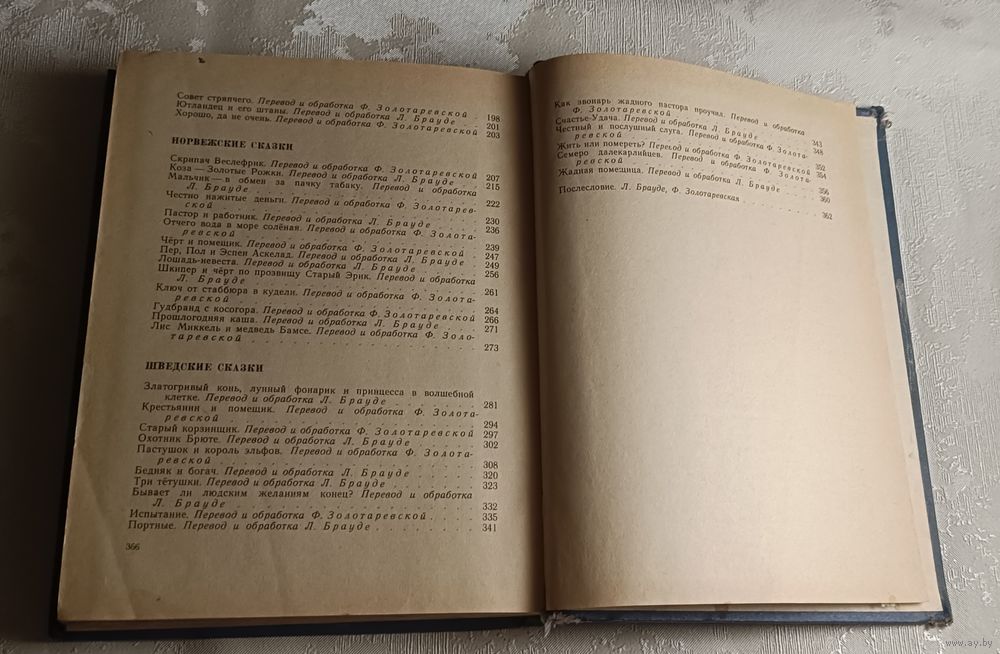 Совет стряпчего. Перевод и обработка Ф. Золотаревской 198
Ютландец и его штаны. Перевод и обработка Л. Брауде . . . 201
Хорошо, да не очень. Перевод и обработка Ф. Золотаревской 203
НОРВЕЖСКИЕ СКАЗКИ
Скрипач Веслефрик. Перевод и обработка Ф. Золотаревской 207
Коза — Золотые Рожки. Перевод и обработка Л. Брауде . . . 215
Мальчик — в обмен за пачку табаку. Перевод и обработка
Л. Брауде . . . 222
Честно нажитые деньги. Перевод и обработка Ф. Золотарев-
ской . . . 230
Пастор и работник. Перевод и обработка Л. Брауде . . . 236
Отчего вода в море солёная. Перевод и обработка Ф. Золота-
ревской . . . 239
Чёрт и помещик. Перевод и обработка Ф. Золотаревской . . 247
Пер, Пол и Эспен Аскелад. Перевод и обработка Л. Брауде . 249
Лошадь-невеста. Перевод и обработка Л. Брауде . . . 256
Шкипер и чёрт по прозвищу Старый Эрик. Перевод и обработка
Л. Брауде . . . 261
Ключ от стаббюра в кудели. Перевод и обработка Ф. Золота-
ревской . . . 264
Гудбранд с косогора. Перевод и обработка Ф. Золотаревской 266
Прошлогодняя каша. Перевод и обработка Л. Брауде . . . 271
Лис Миккель и медведь Бамсе. Перевод и обработка Ф. Золо-
таревской . . . 273
ШВЕДСКИЕ СКАЗКИ
Златогривый конь, лунный фонарик и принцесса в волшебной
клетке. Перевод и обработка Л. Брауде . . . 281
Крестьянин и помещик. Перевод и обработка Ф. Золота-
ревской . . . 294
Старый корзинщик. Перевод и обработка Ф. Золотаревской 297
Охотник Брюте. Перевод и обработка Л. Брауде . . . 302
Пастушок и король эльфов. Перевод и обработка Ф. Золота-
ревской . . . 308
Бедняк и богач. Перевод и обработка Л. Брауде . . . 320
Три тётушки. Перевод и обработка Л. Брауде . . . 323
Бывает ли людским желаниям конец? Перевод и обработка
Л. Брауде . . . 332
Испытание. Перевод и обработка Ф. Золотаревской . . . 335
Портные. Перевод и обработка Л. Брауде . . . 341
366
Как звонарь жадного пастора проучил. Перевод и обработка
Ф. Золотаревской . . . 343
Счастье-Удача. Перевод и обработка Л. Брауде . . . 348
Честный и послушный слуга. Перевод и обработка Ф. Золота-
ревской . . . 352
Жить или помереть? Перевод и обработка Ф. Золотаревской 354
Семеро далекарлийцев. Перевод и обработка Ф. Золота-
ревской . . . 356
Жадная помещица. Перевод и обработка Л. Брауде . . . 360
Послесловие. Л. Брауде, Ф. Золотаревская . . . 362
www.ay.by